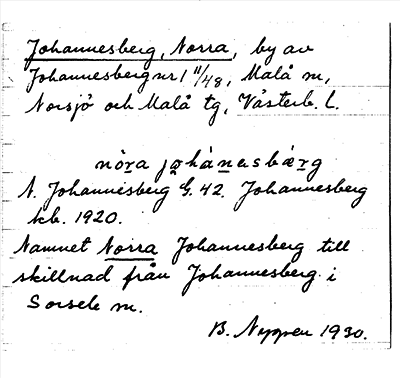 Johannesberg, Norra, by av
Johannesberg nr 1 11/48, Malå sn,
Norsjö och Malå tg, Västerb. L.
nòra johánesbærg
N. Johannesberg G. 42. Johannesberg
kb. 1920.
Namnet Norra Johannesberg till
skillnad från Johannesberg i
Sorsele sn.
B. Nyppen 1930.